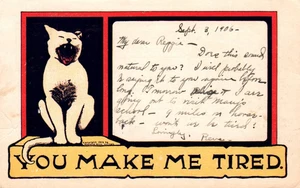 Sept. 3, 1906-
My dear Reggie-
Does this sound
natural to you? I will probably
be saying it to you again before
long. Tomorrow I am
going out to visit Mary's
school- 9 miles on horse-
back- won't I be tired!
Lovingly,
YOU MAKE ME TIRED.